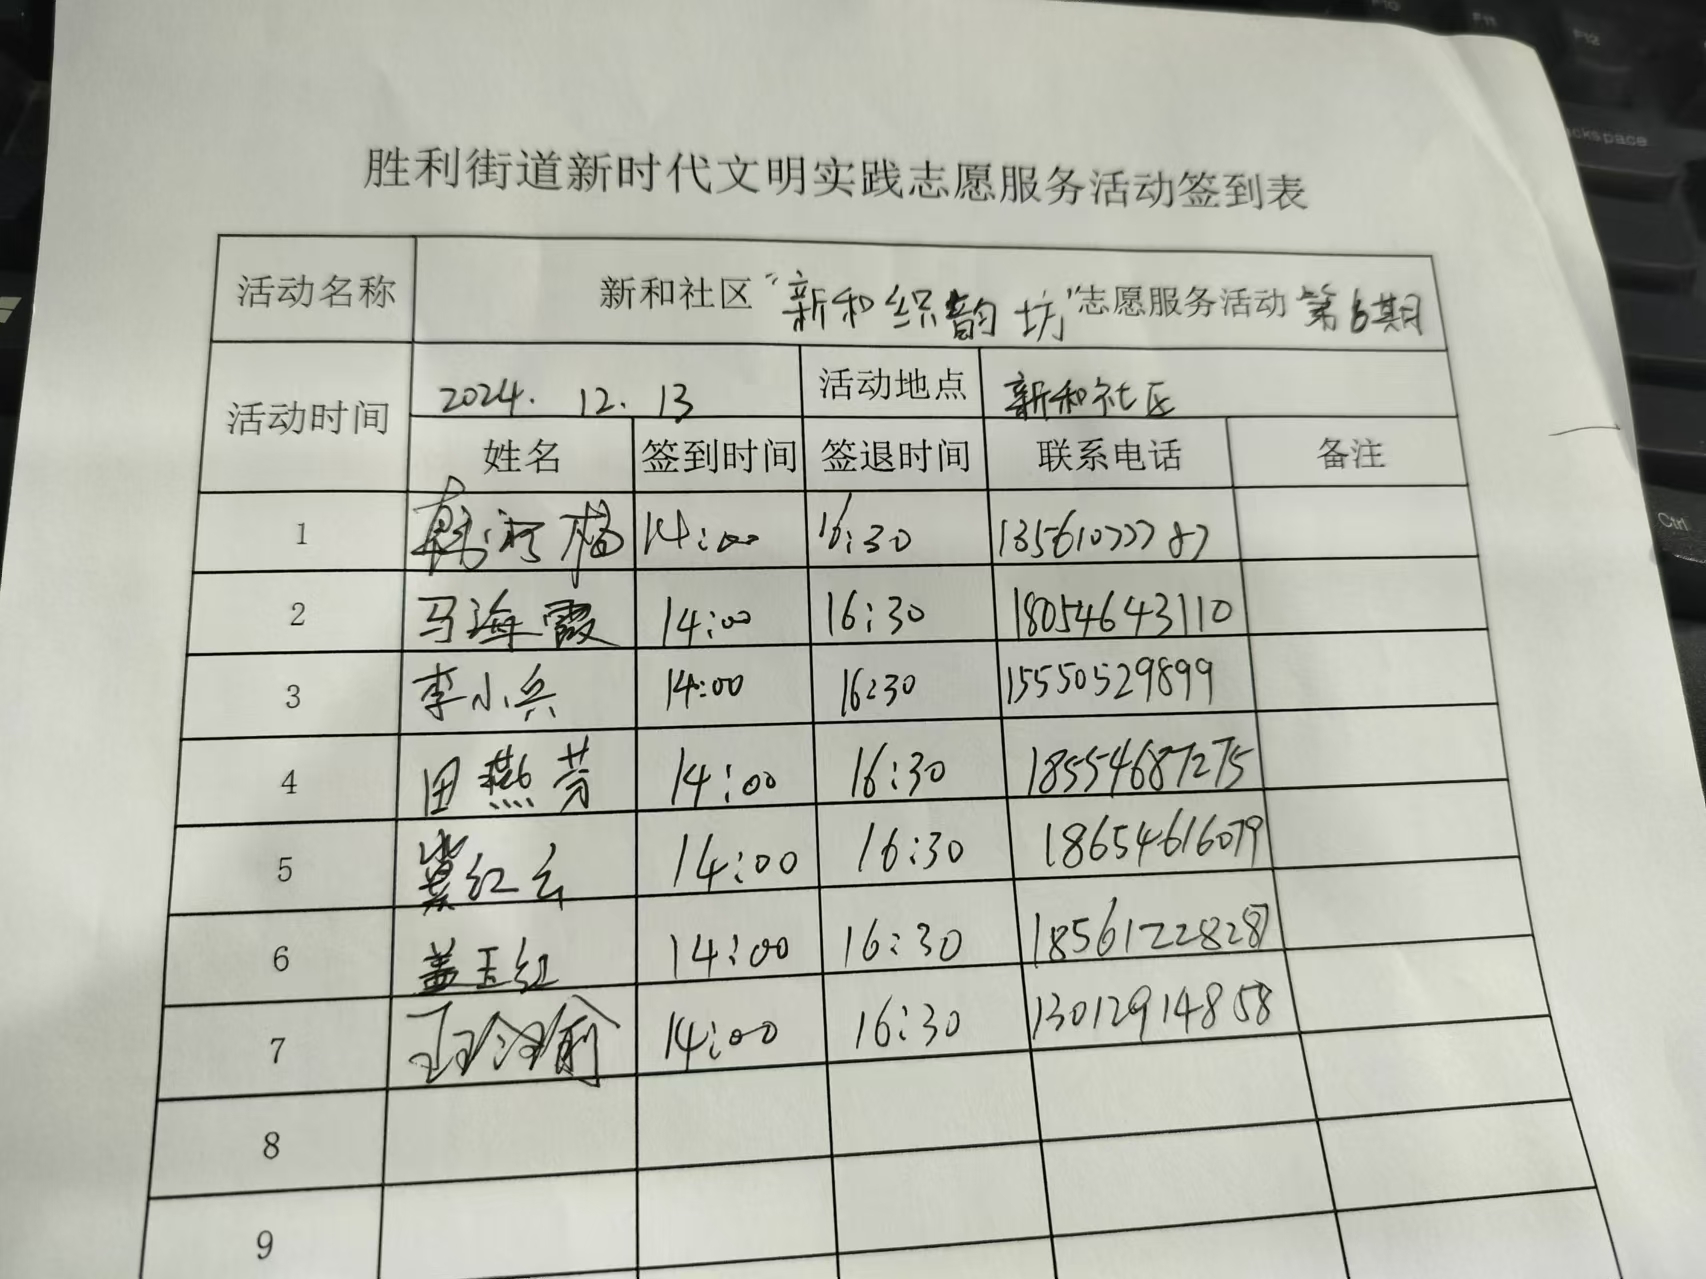 胜利街道新时代文明实践志愿服务活动签到表
活动名称 新和社区"新和织韵坊"志愿服务活动 第6期
活动时间 2024. 12. 13 活动地点 新和社区
姓名 签到时间 签退时间 联系电话 备注
1 14:00 16:30 13561077787
2 马海霞 14:00 16:30 18054643110
3 李小兵 14:00 16:30 15550529899
4 田燕芳 14:00 16:30 18554687275
5 冀红云 14:00 16:30 18654616079
6 盖玉红 14:00 16:30 18561222828
7 14:00 16:30 13012914858
8
9